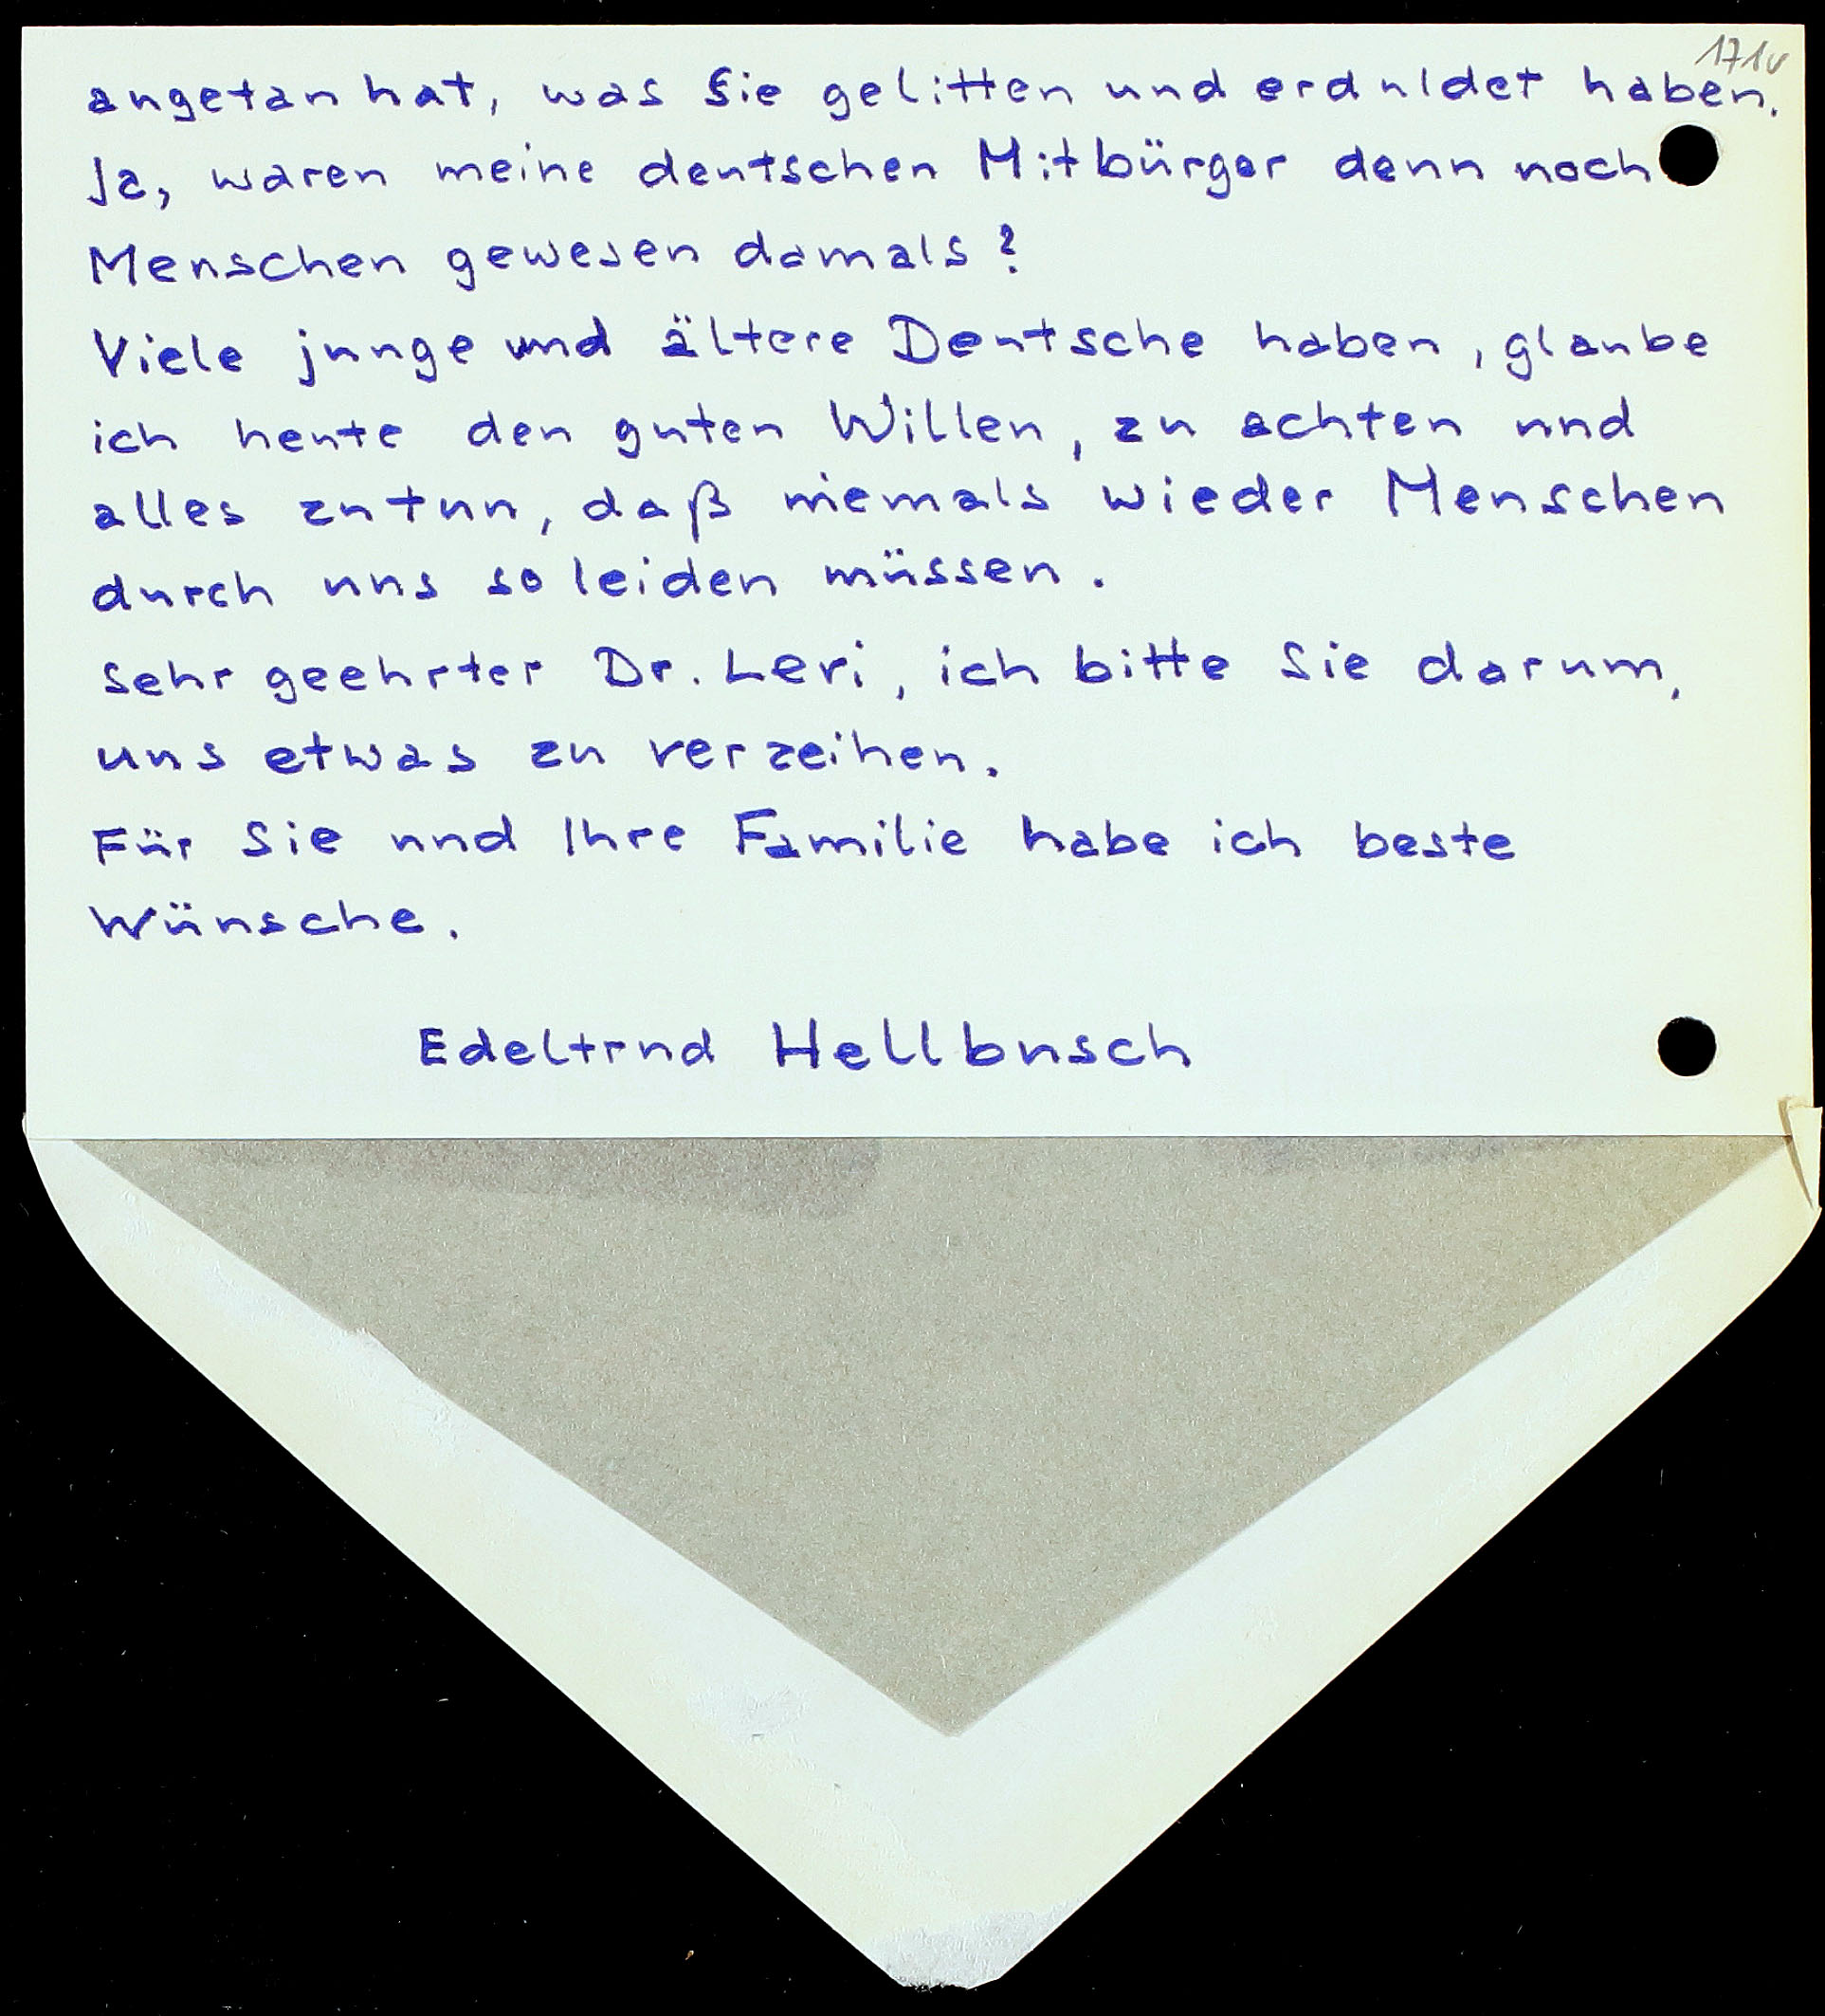 171v
angetan hat, was Sie gelitten und erduldet haben.
Ja, waren meine deutschen Mitbürger denn noch
Menschen gewesen damals?
Viele junge und ältere Deutsche haben, glaube
ich heute den guten Willen, zu achten und
alles zutun, daß niemals wieder Menschen
durch uns so leiden müssen.
Sehr geehrter Dr. Levi, ich bitte Sie darum,
uns etwas zu verzeihen.
Für Sie und Ihre Familie habe ich beste
Wünsche.
Edeltrud Hellbusch